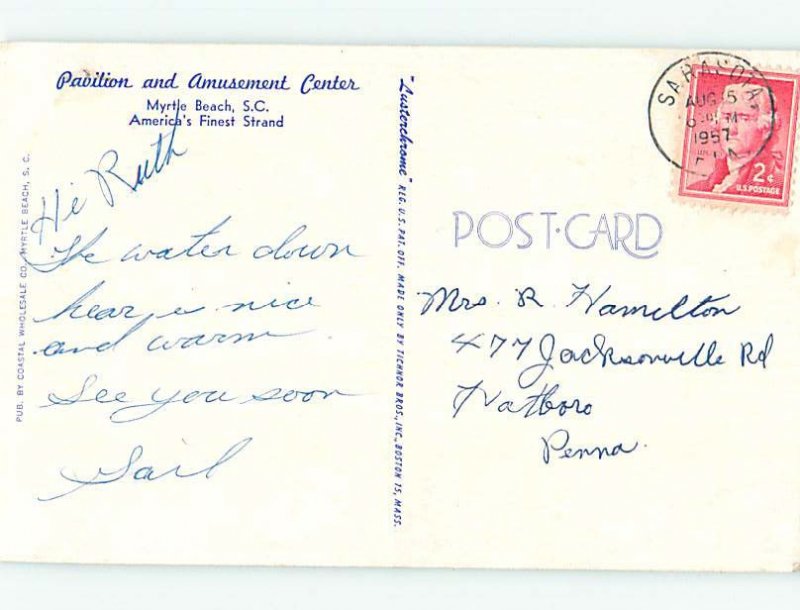 Pavilion and Amusement Center
Myrtle Beach, S.C.
America's Finest Strand
Hi Ruth
The water down
hear is nice
and warm
See you soon
Gail
PUB. BY COASTAL WHOLESALE CO., MYRTLE BEACH, S. C.
"Lusterchrome" REG. U.S. PAT. OFF. MADE ONLY BY TICHNOR BROS., INC., BOSTON 15, MASS.
SARASOTA,
AUG 5
PM
1957
2¢
U.S. POSTAGE
POST-CARD
Mrs. R. Hamilton
477 Jacksonville Rd
Hatboro
Penna.